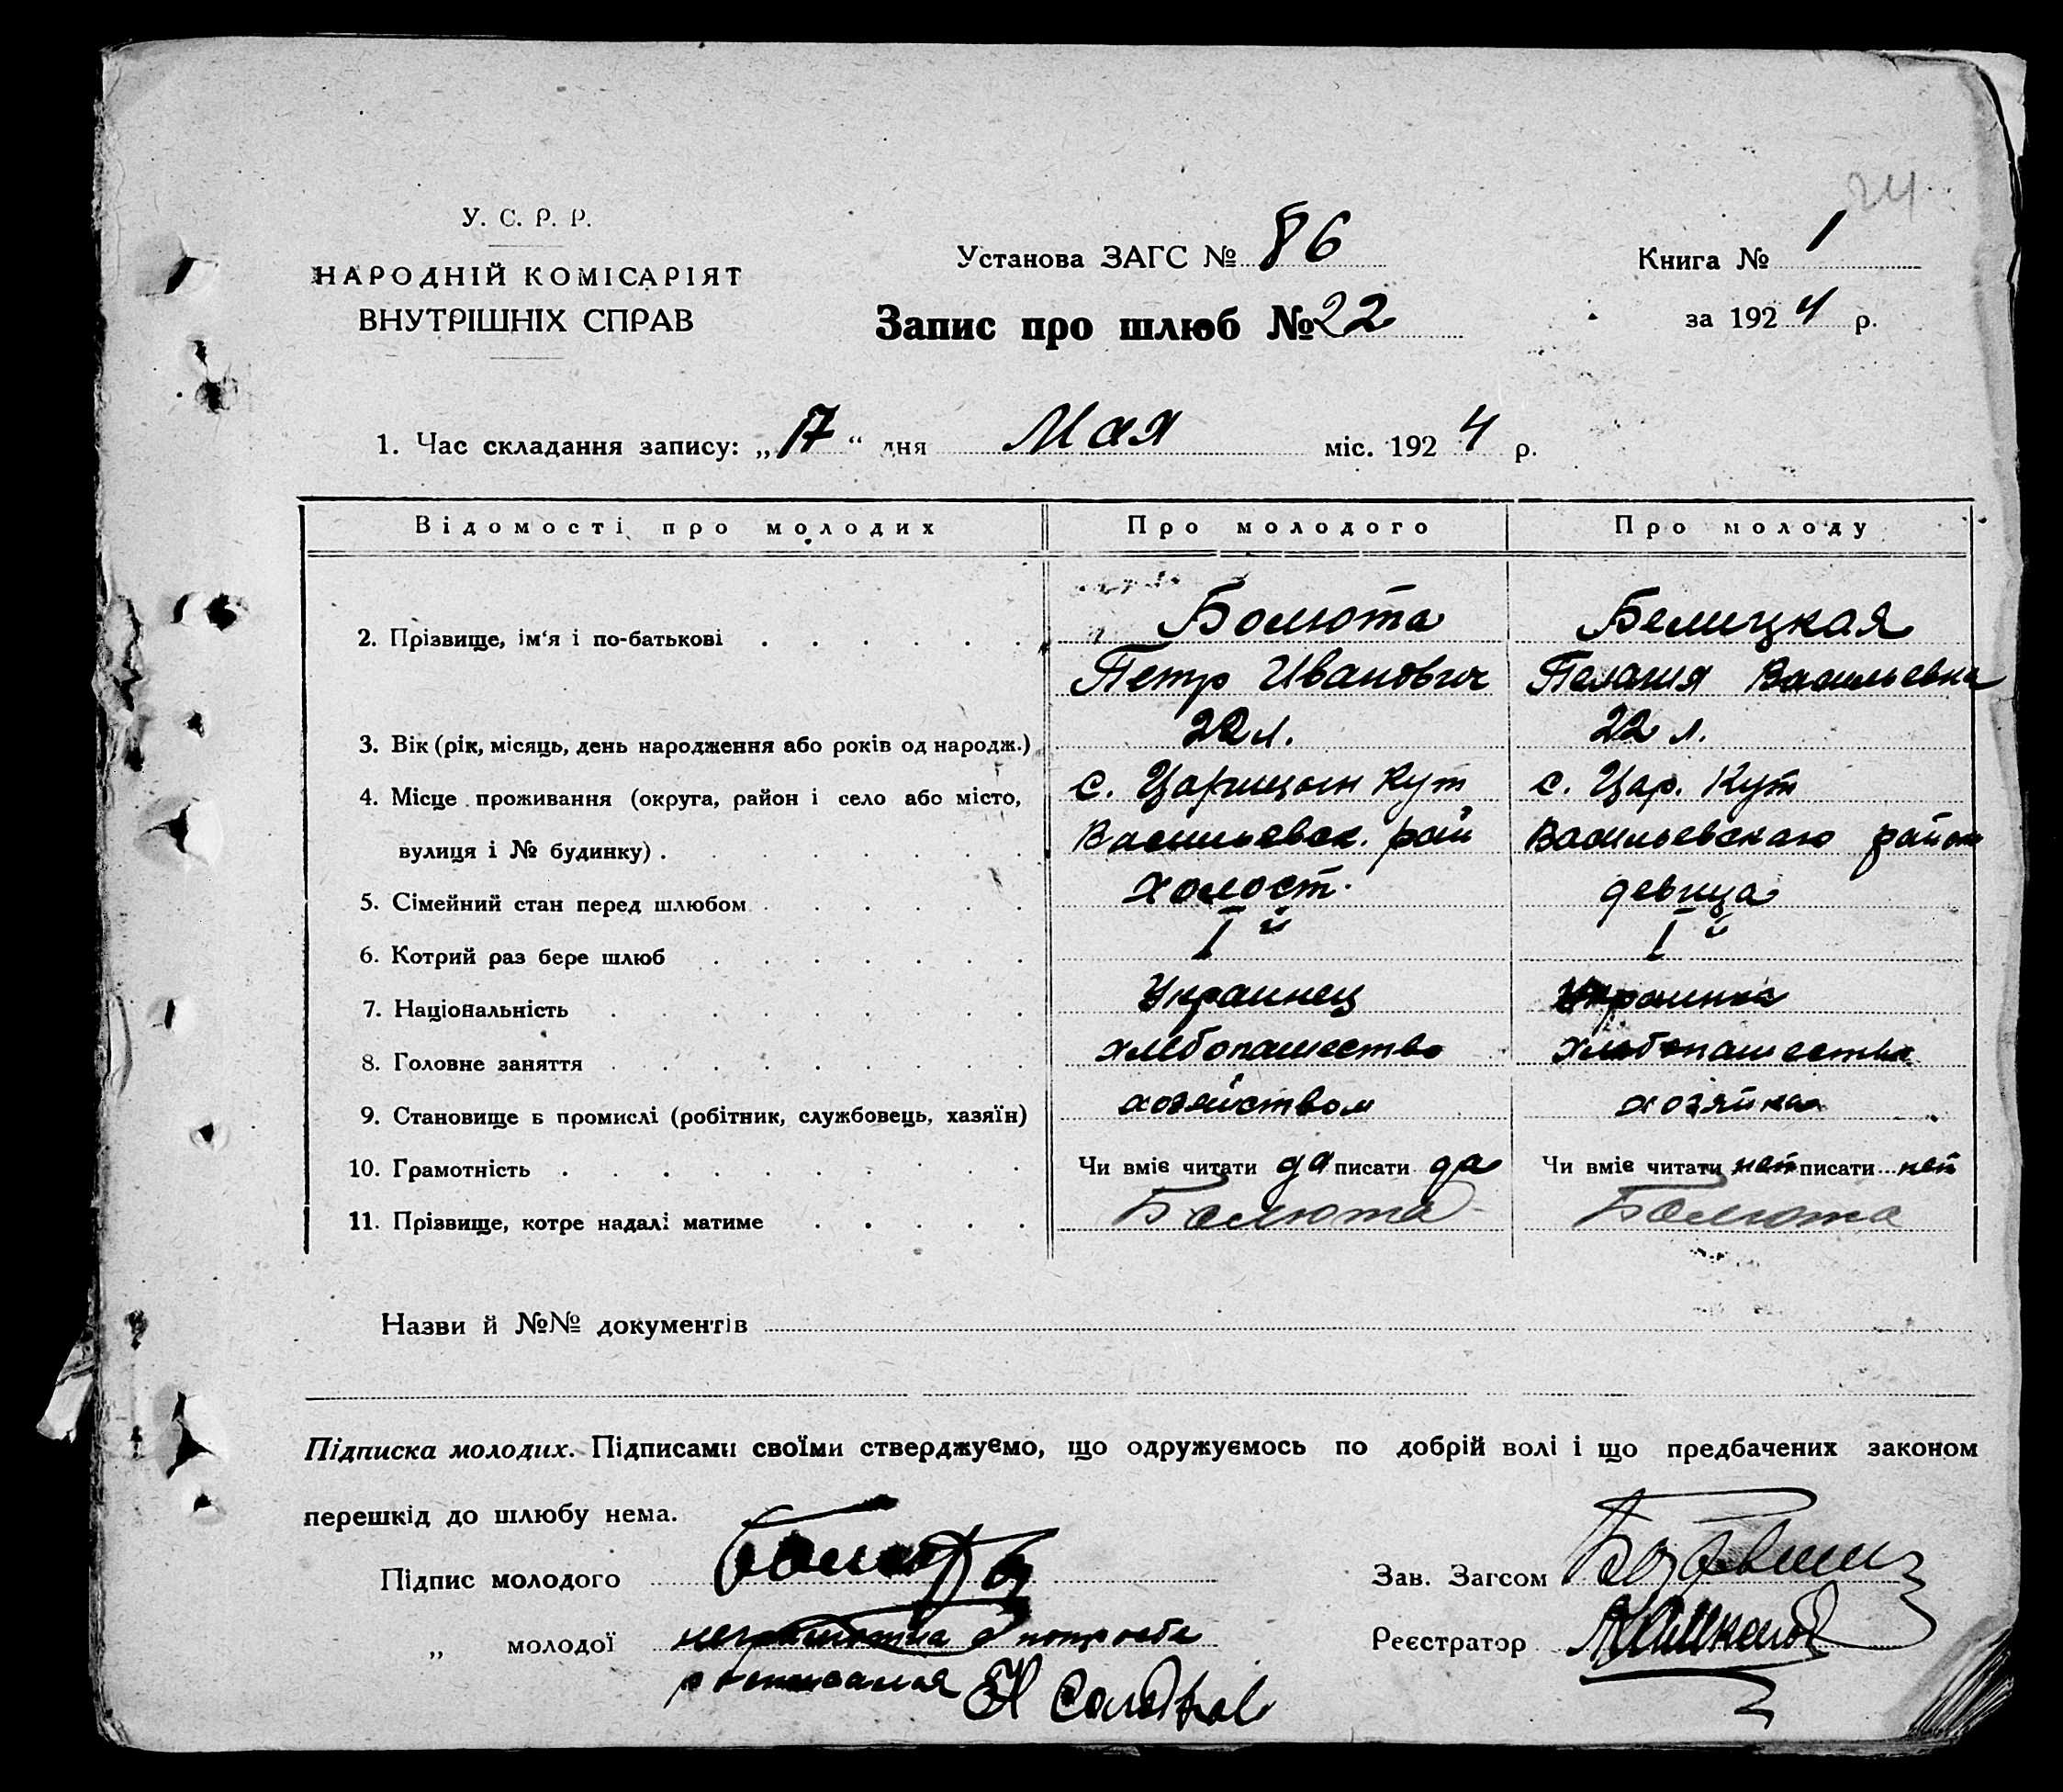 24
У. С. Р. Р.
НАРОДНІЙ КОМІСАРІЯТ
ВНУТРІШНІХ СПРАВ
Установа ЗАГС № 86
Запис про шлюб № 22
Книга № 1
за 1924 р.
1. Час складання запису: „17“ дня Мая міс. 1924 р.
Відомості про молодих Про молодого Про молоду
2. Прізвище, ім'я і по-батькові Болюта Белицкая
Петр Иванович Пелагия Васильевна
3. Вік (рік, місяць, день народження або років од народж.) 22 л. 22 л.
4. Місце проживання (округа, район і село або місто, с. Царицын Кут с. Цар. Кут
вулиця і № будинку) Васильевск. рай Васильевскаго район
5. Сімейний стан перед шлюбом холост. девица
6. Котрий раз бере шлюб I й I й
7. Національність Украинец Украинка
8. Головне заняття хлебопашество хлебопашество
9. Становище в промислі (робітник, службовець, хазяїн) хозяйством хозяйка
10. Грамотність Чи вміє читати да писати да Чи вміє читати нет писати нет
11. Прізвище, котре надалі матиме Болюта Болюта
Назви й №№ документів
Підписка молодих. Підписами своїми стверджуємо, що одружуємось по добрій волі і що предбачених законом
перешкід до шлюбу нема.
Підпис молодого Зав. Загсом
„ молодої неграмотна Реєстратор